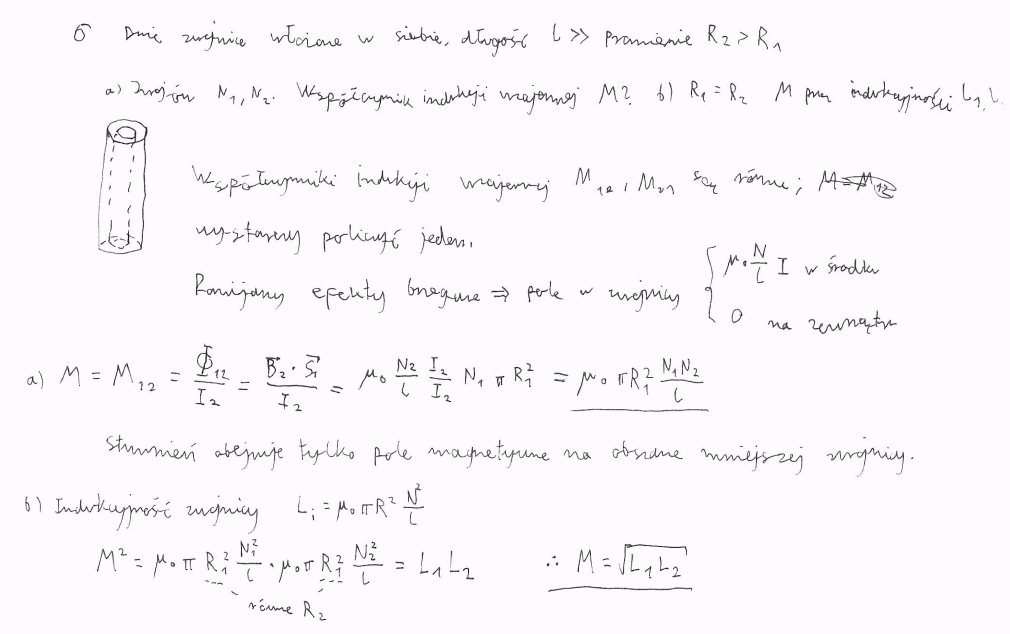 6 Dwie zwojnice włożone w siebie, długość l >> promienie R₂ > R₁
a) Zwojów N₁, N₂. Współczynnik indukcji wzajemnej M? b) R₁ = R₂ M przez indukcyjności L₁, L
Współczynniki indukcji wzajemnej M₁₂, M₂₁ są równe; M=M₁₂
wystarczy policzyć jeden.
Pomijamy efekty brzegowe ⇒ pole w zwojnicy { μ₀ N/l I w środku
0 na zewnątrz
a) M = M₁₂ = Φ₁₂/I₂ = B⃗₂·S⃗₁/I₂ = μ₀ N₂/l I₂/I₂ N₁ π R₁² = μ₀ π R₁² N₁N₂/l
Strumień obejmuje tylko pole magnetyczne na obszarze mniejszej zwojnicy.
b) Indukcyjność zwojnicy Lᵢ = μ₀ π R² N²/l
M² = μ₀ π R₁² N₁²/l · μ₀ π R₁² N₂²/l = L₁ L₂ ∴ M = √(L₁L₂)
równe R₂